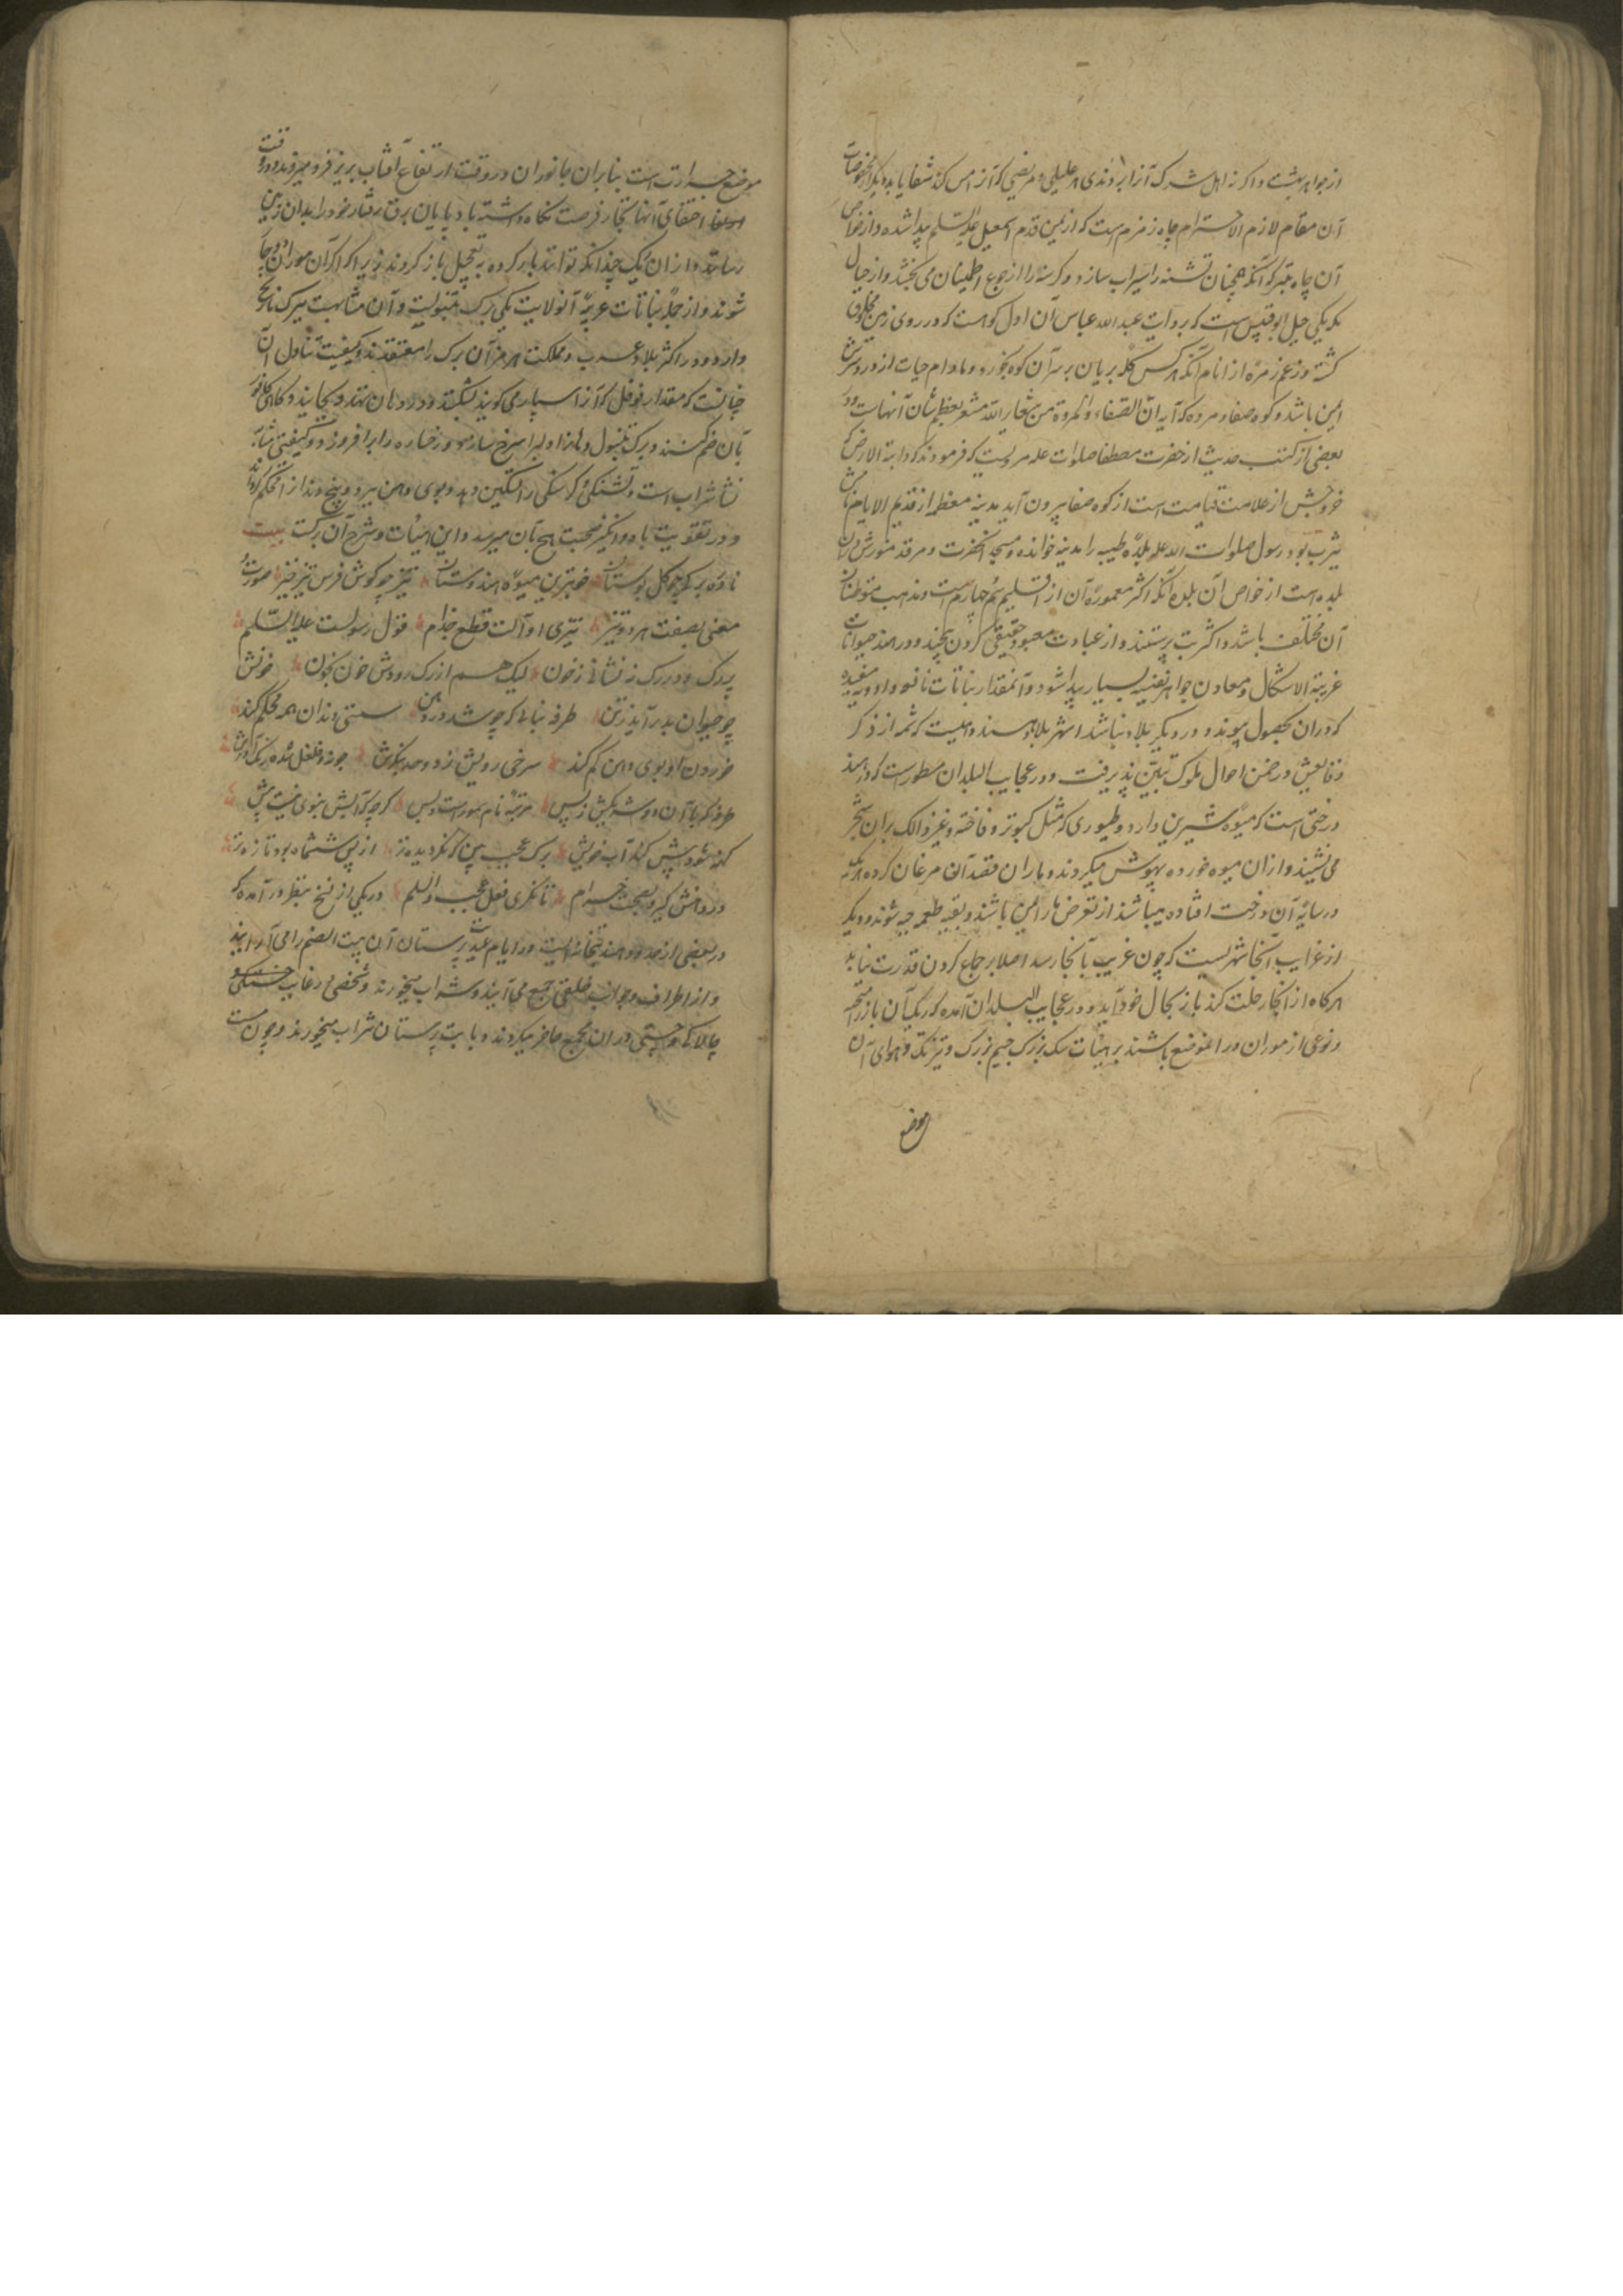 از جواهر بهشت و اگر نه اهل شرک آنرا بردندی هر علیلی و مریضی که آنرا مس کند شفا یابد دیگر از مخصوصات
آن مقام لازم الاحترام چاه زمزم است که از یمن قدم اسمعیل علیه السلم پیدا شده و از خواص
آن چاه متبرک آنکه همچنان تشنه را سیراب سازد و گرسنه را از جوع اطمینان می بخشد و از جبال
مکه یکی جبل ابوقبیس است که بروایت عبدالله عباس آن اول کوهست که در روی زمین مخلوق
گشته و زعم زمرهٔ از انام آنکه هر کس کله بریان بر سر آن کوه بخورد و مادام حیات از درد سرش
ایمن باشد و کوه صفا و مروه که آیه ان الصفاء والمروة من شعایر الله مشعر بعظم شان آنهاست و در
بعضی از کتب حدیث از حضرت مصطفا صلوات علیه مرویست که فرمودند که دابة الارض که
خروجش از علامت قیامت است از کوه صفا بیرون آید مدینه معظمه از قدیم الایام نامش
یثرب بود رسول صلوات الله علیه بلدهٔ طیبه را مدینه خوانده و مسجد آنحضرت و مرقد منورش در آن
بلده است از خواص آن بلده آنکه اکثر معمورهٔ آن از اقلیم چهارم است مذهب متوطنان
آن مختلف باشد و اکثر بت پرستند و از عبادت معبود حقیقی گردن پیچند و در هند حیوانات
غریبة الاشکال و معادن جواهر نفیسه بسیار پیدا شود و آنمقدار نباتات نافع و ادویه مفیده
که در آن بحصول پیوندد در دیگر بلاد نباشد اشهر بلاد هند دهلیست که شمه از ذکر
وقایعش در ضمن احوال ملوک تبیین پذیرفت و در عجایب البلدان مسطور است که در هند
درختی است که میوهٔ شیرین دارد و طیوری که مثل کبوتر و فاخته و غیر ذالک بر آن شجر
می نشیند و از آن میوه خورده بیهوش میگردند و ماران قصد آن مرغان کرده هر که
در سایهٔ آن درخت افتاده میباشد از تعرض مار ایمن باشد و بقیه طعمه حیه شوند و دیگر
از غرایب آنجا شهریست که چون غریب بآنجا رسد اصلا بر جماع کردن قدرت نیابد
هر گاه از آنجا رحلت کند باز بحال خود آید و در عجایب البلدان آمده که ریگ آن با زر
و نوعی از موران در آنموضع باشند بر هیئات سگ بزرگ جسم بزرگ و تیز تک و هوای آن
موضع
موضع حرارت است بنابران جانوران در وقت ارتفاع آفتاب بزیر فرو میروند و در وقت
اختفای آنها تجار فرصت نگاه داشته بادپایان برق رفتار خود را بدان زمین
رسانند و از آن ریگ چندانکه توانند بار کرده به تعجیل باز گردند زیرا که اگر آن موران دوچار
شوند و از جملهٔ نباتات غریبهٔ آنولایت یکی برگ تنبولیست و آن مشابهت ببرگ نارنج
دارد و در اکثر بلاد عرب و مملکت هرمز آن برگ را معتقدند و کیفیت تناول آن
چنانست که مقدار فوفل که آنرا سپاری گویند بشکنند و در دهان نهند و بخایند و گاهی کافور
بآن ضم کنند و برگ تنبول دهان و لب را سرخ سازد و رخساره را برافروزد و کیفیتی مشابه
نشاٴ شراب است و تشنگی و گرسنگی را تسکین دهد و بوی دهن ببرد و بیخ دندان را محکم گرداند
و در تقویت باه و انگیز صحبت هیچ بآن نمیرسد و این ابیات در شرح آن برگست بیت
نادره برگی چو گل بوستان خوبترین میوهٔ هندوستان تیز چو گوش فرس تیز خیز صورت و
معنی بصفت هر دو تیز تیزی او آلت قطع جذام قول رسولست علیه السلم
پر رگ و در رگ نه نشانی ز خون لیک هم از رگ رودش خون برون خونش
چو حیوان بدر آید ز تن طرفه نباتی که چو شد در دهن سستی دندان همه محکم کند
خوردن او بوی دهن کم کند سرخی رویش ز دو خدمتگرش چونه و فوفل شده رنگ آورش
طرفه که با آن دو شریکش ز پس مرتبه نام همو راست و بس گرچه که آبش بنوی نیست پیش
کهنه شود بیش کند آب خویش برگ عجب بین که نگردیده تر از پی ششماه بود تازه تر
در دهنش گیر و بصحبت خرام تا نگری فعل عجیب والسلم در یکی از نسخ بنظر در آمده که
در بعضی از حدود هند بتخانه ایست در ایام عید بت پرستان آن بیت الصنم را می آرایند
و از اطراف و جوانب خلقی جمع می آیند و شراب میخورند و شخصی در غایت چستی و
چالاکی در آن مجمع حاضر میگردند و با بت پرستان شراب میخورند و چون مست